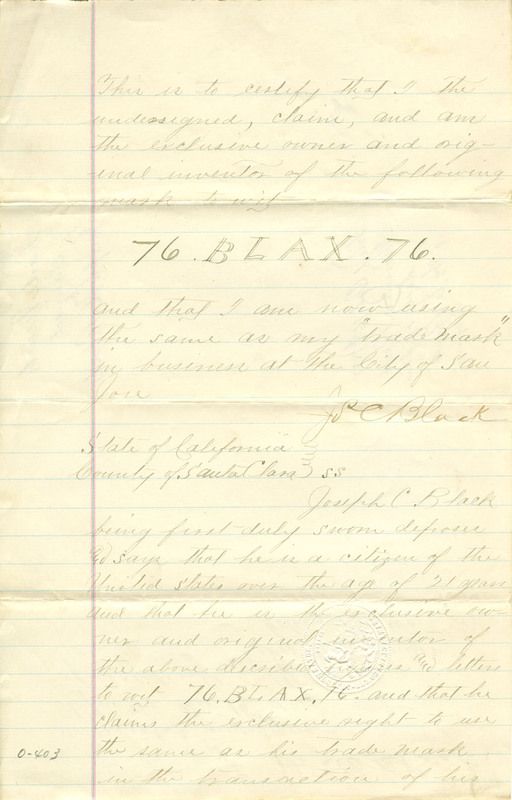 This is to certify that I the
undersigned, claim, and am
the exclusive owner and orig-
inal inventor of the following
mark to wit
76. BLAX. 76.
and that I am now using
the same as my "trade mark"
in business at the City of San
Jose
Jos C Black
State of California
County of Santa Clara } ss
Joseph C. Black
being first duly sworn deposes
and says that he is a citizen of the
United states over the age of 21 years
and that he is the exclusive ow-
ner and original inventor of
the above and letters
to wit 76. BLAX. 76. and that he
claims the exclusive right to use
the same as his trade mark
in the transaction of his
0-403